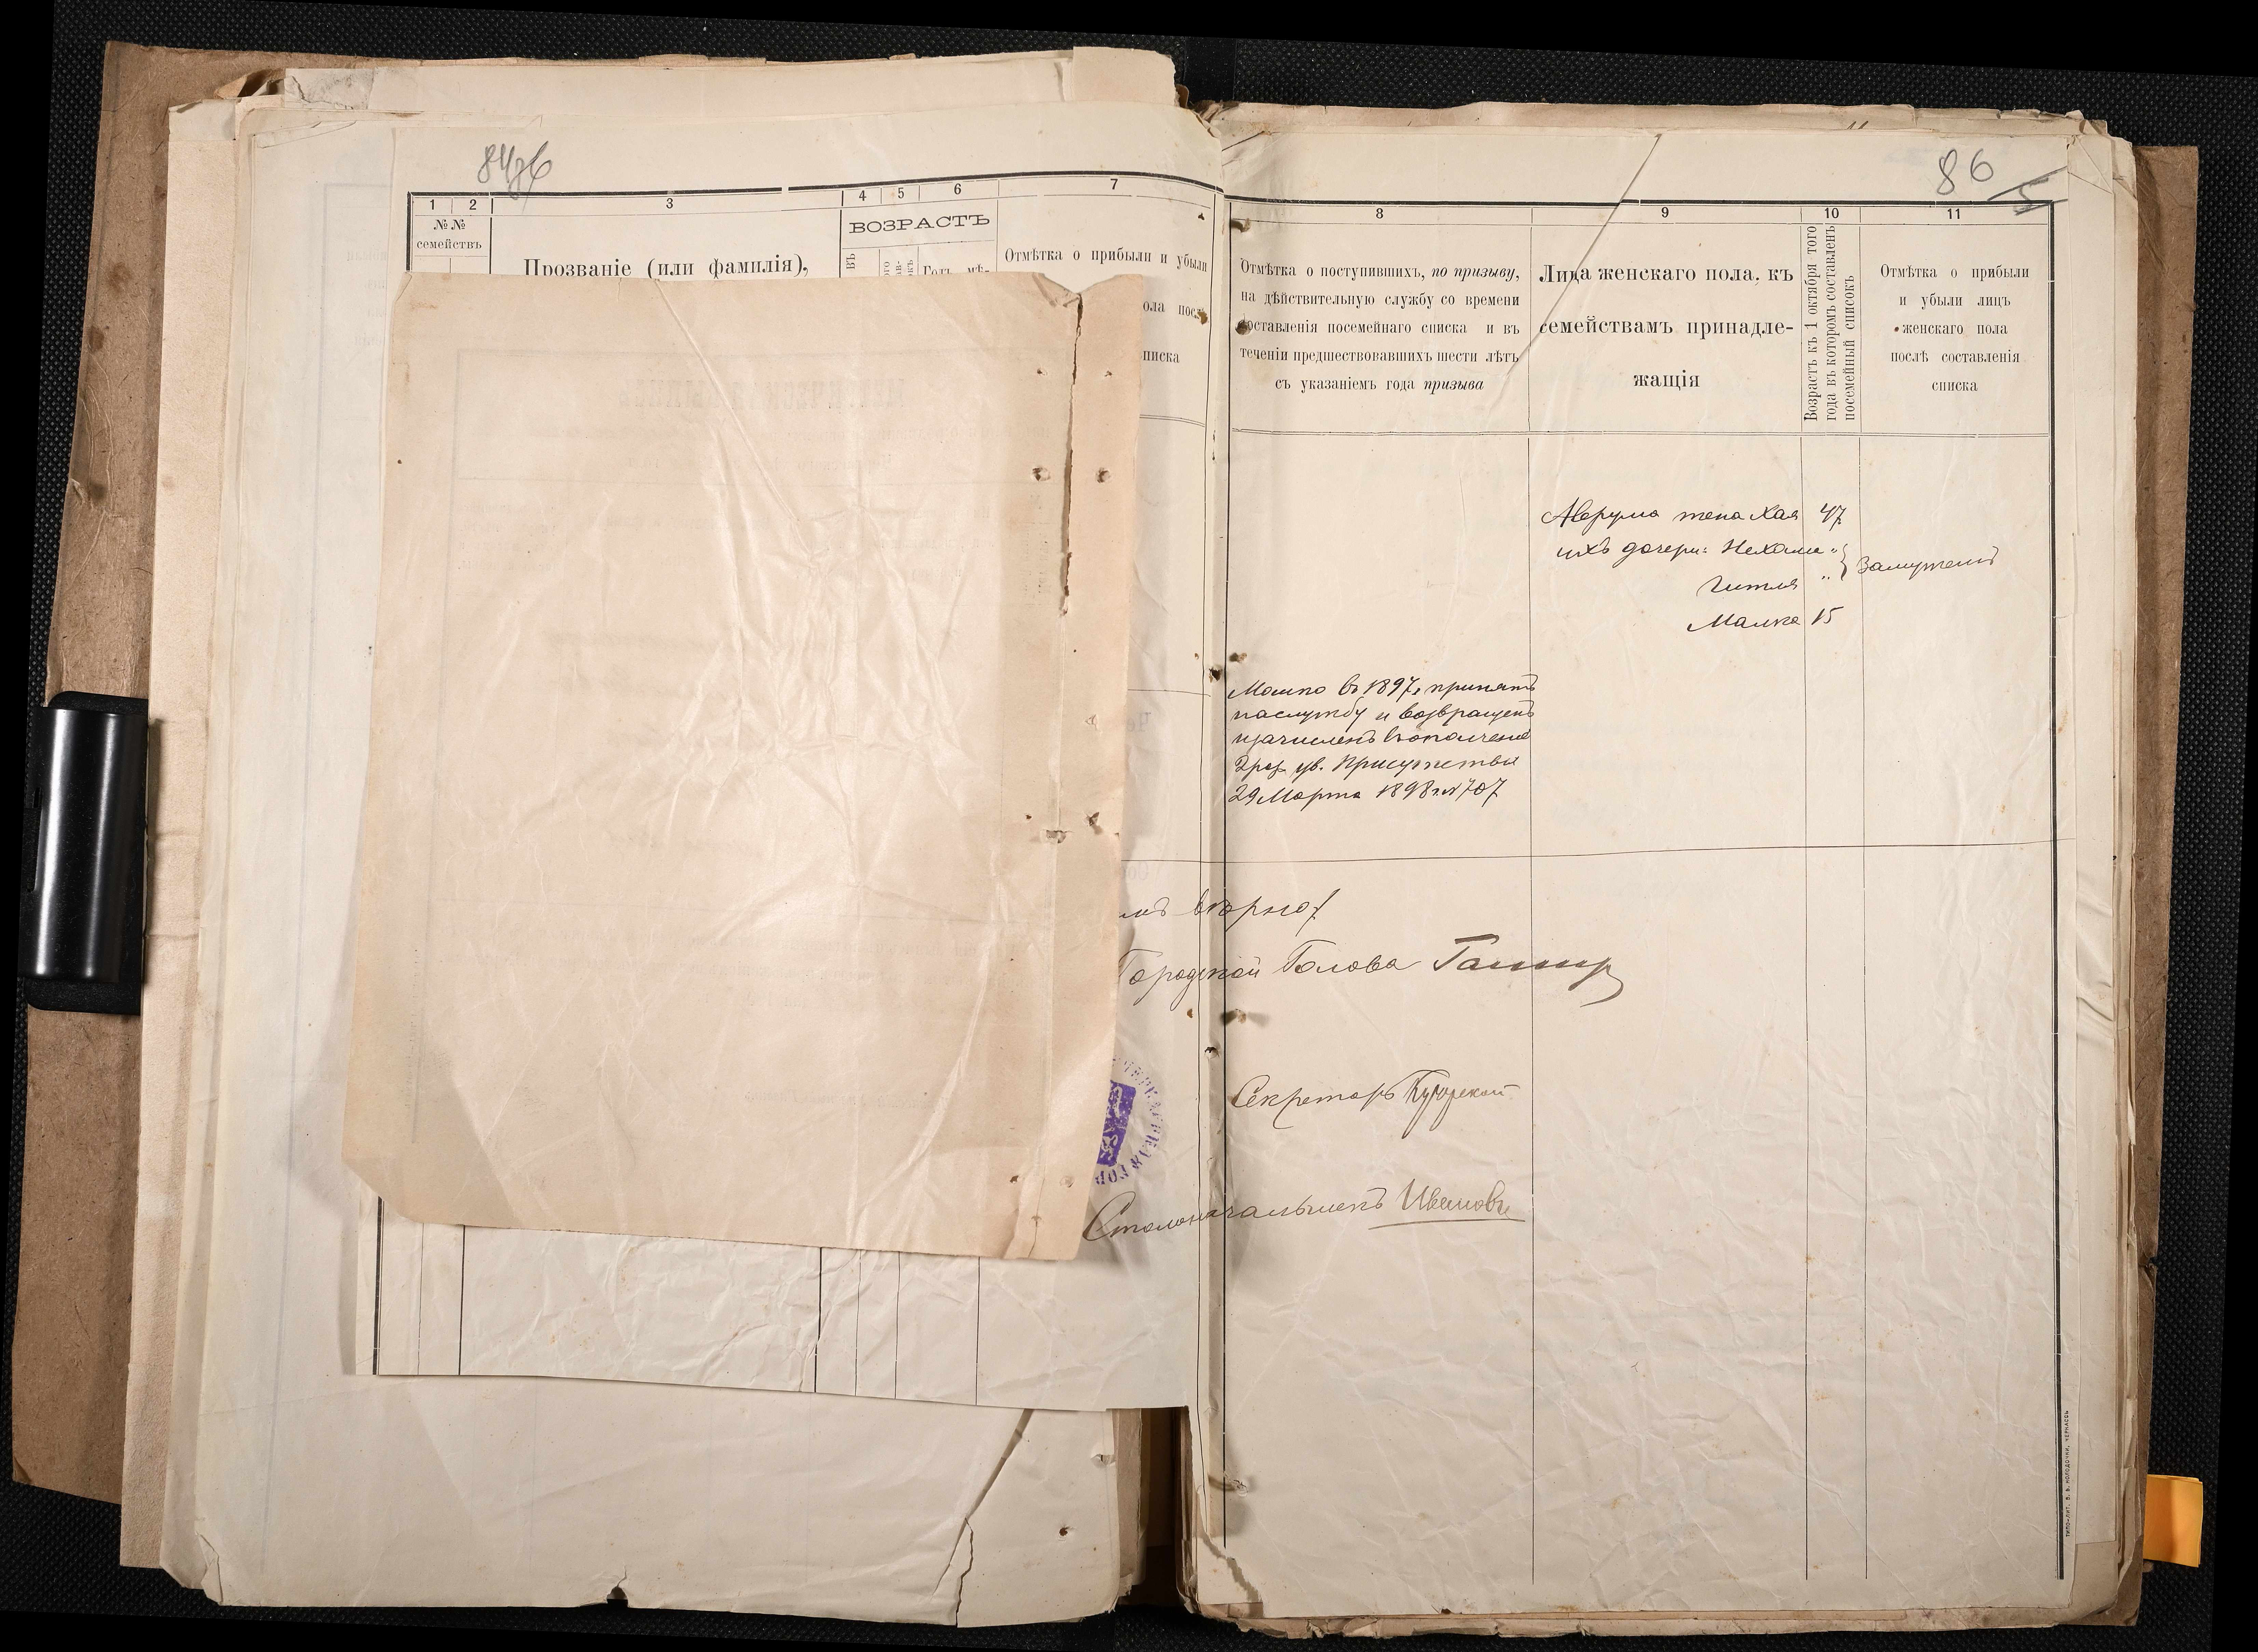 86
1 2 3 4 5 6 7
№№
семействъ
Прозваніе (или фамилія),
ВОЗРАСТЪ
въ
Годъ, мѣ-
Отмѣтка о прибыли и убыли
ола посл
писка
86
5
8 9 10 11
Отмѣтка о поступившихъ, по призыву,
на дѣйствительную службу со времени
составленія посемейнаго списка и въ
теченіи предшествовавшихъ шести лѣтъ
съ указаніемъ года призыва
Лица женскаго пола, къ
семействамъ принадле-
жащія
Возрастъ къ 1 октября того
года въ которомъ составленъ
посемейный списокъ
Отмѣтка о прибыли
и убыли лицъ
женскаго пола
послѣ составленія
списка
Аврума жена Хая 47
ихъ дочери: Нехама "
Гитля " Замужемъ
Малка 15
Мошко въ 1897 г. принятъ
на службу и возвращенъ
и зачисленъ въ ополченіе
2 раз. ув. Присутствія
29 Марта 1898 г. № 707
вѣрно
Городской Голова
Секретарь
Столоначальникъ Ивановъ
ТИПО-ЛИТ. В. В. КОЛОДОЧКИ, ЧЕРКАССЫ